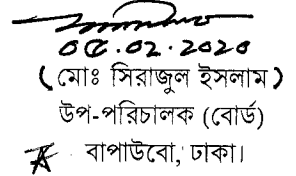 ০৫.০২.২০২০
(মোঃ সিরাজুল ইসলাম)
উপ-পরিচালক (বোর্ড)
বাপাউবো, ঢাকা।